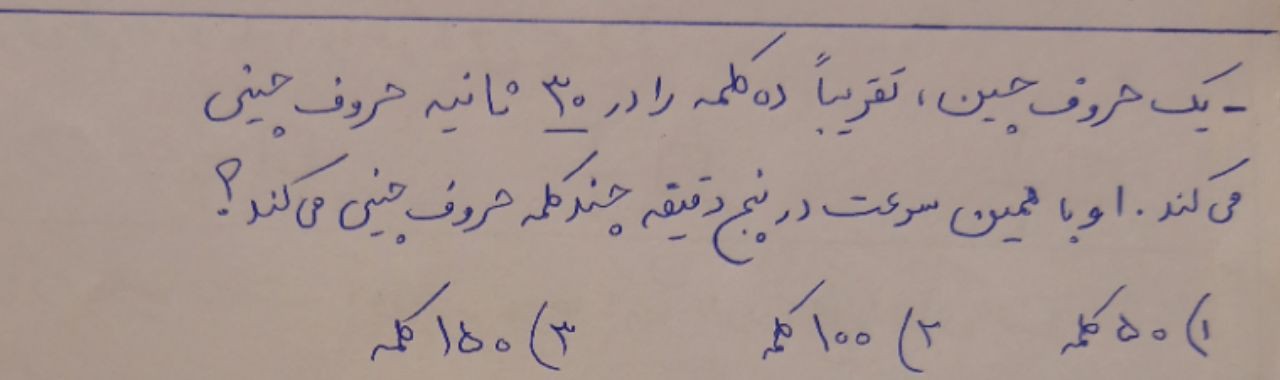 - یک حروف‌چین، تقریباً ده کلمه را در ۳۰ ثانیه حروف‌چینی
می‌کند. او با همین سرعت در پنج دقیقه چند کلمه حروف‌چینی می‌کند؟
۱) ۵۰ کلمه ۲) ۱۰۰ کلمه ۳) ۱۵۰ کلمه